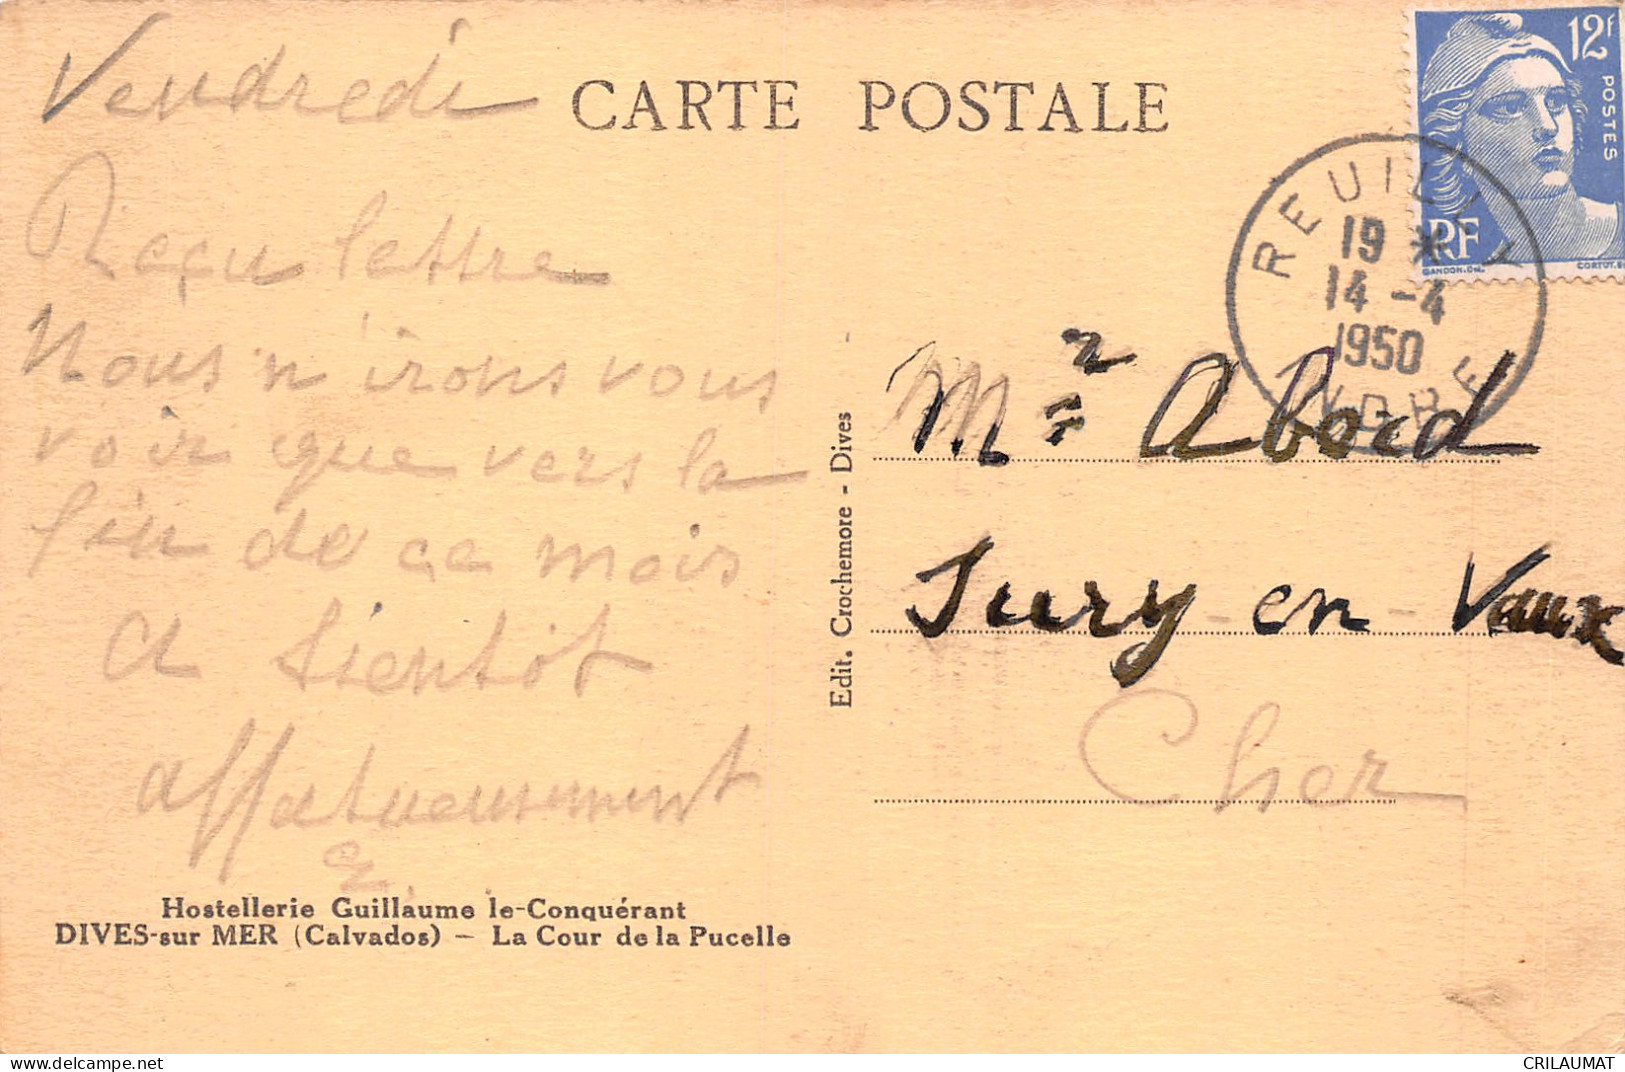 Vendredi
CARTE POSTALE
12F
POSTES
RF
GANDON.DEL.
REUILLY
19 *
14 -4
1950
INDRE
Reçu lettre
Nous n'irons vous
voir que vers la
fin de ce mois
A bientôt
affectueusement
Edit. Crochemore - Dives
Abord
Jury-en-Vaux
Cher
Hostellerie Guillaume le-Conquérant
DIVES-sur MER (Calvados) — La Cour de la Pucelle
https://www.delcampe.net
CRILAUMAT